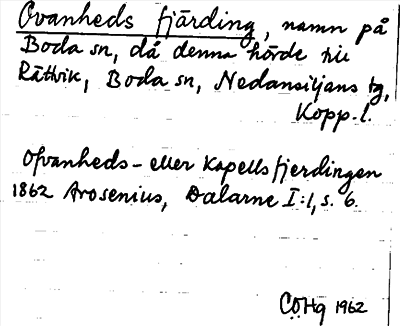 Ovanheds fjärding, namn på
Boda sn, då denna hörde till
Rättvik, Boda sn, Nedansiljans tg,
Kopp. l.
Ofvanheds- eller Kapellsfjerdingen
1862 Arosenius, Dalarne I:1, s. 6.
COHg 1962